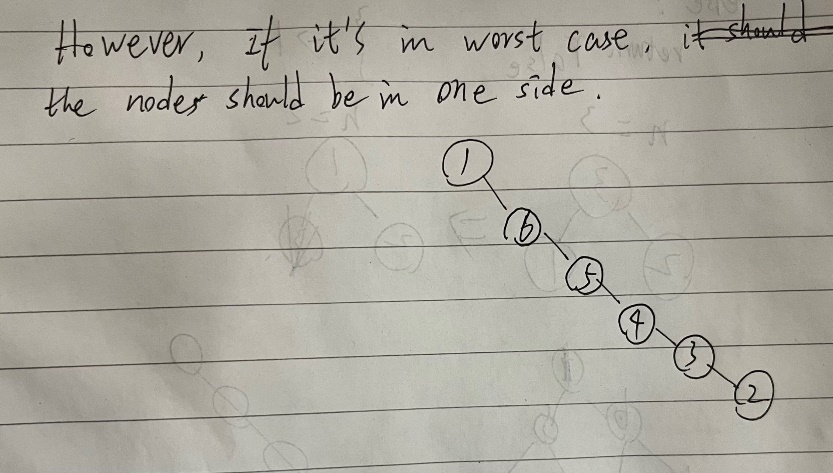 However, If it's in worst case, it should
the nodes should be in one side.
1
6
5
4
3
2